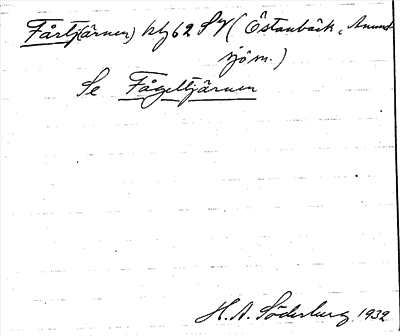 Fårtj(ärnen) blg 62 SV (Östanbäck, Anund-
sjö sn.)
Se Fågeltjärnen
H. A. Söderberg 1932